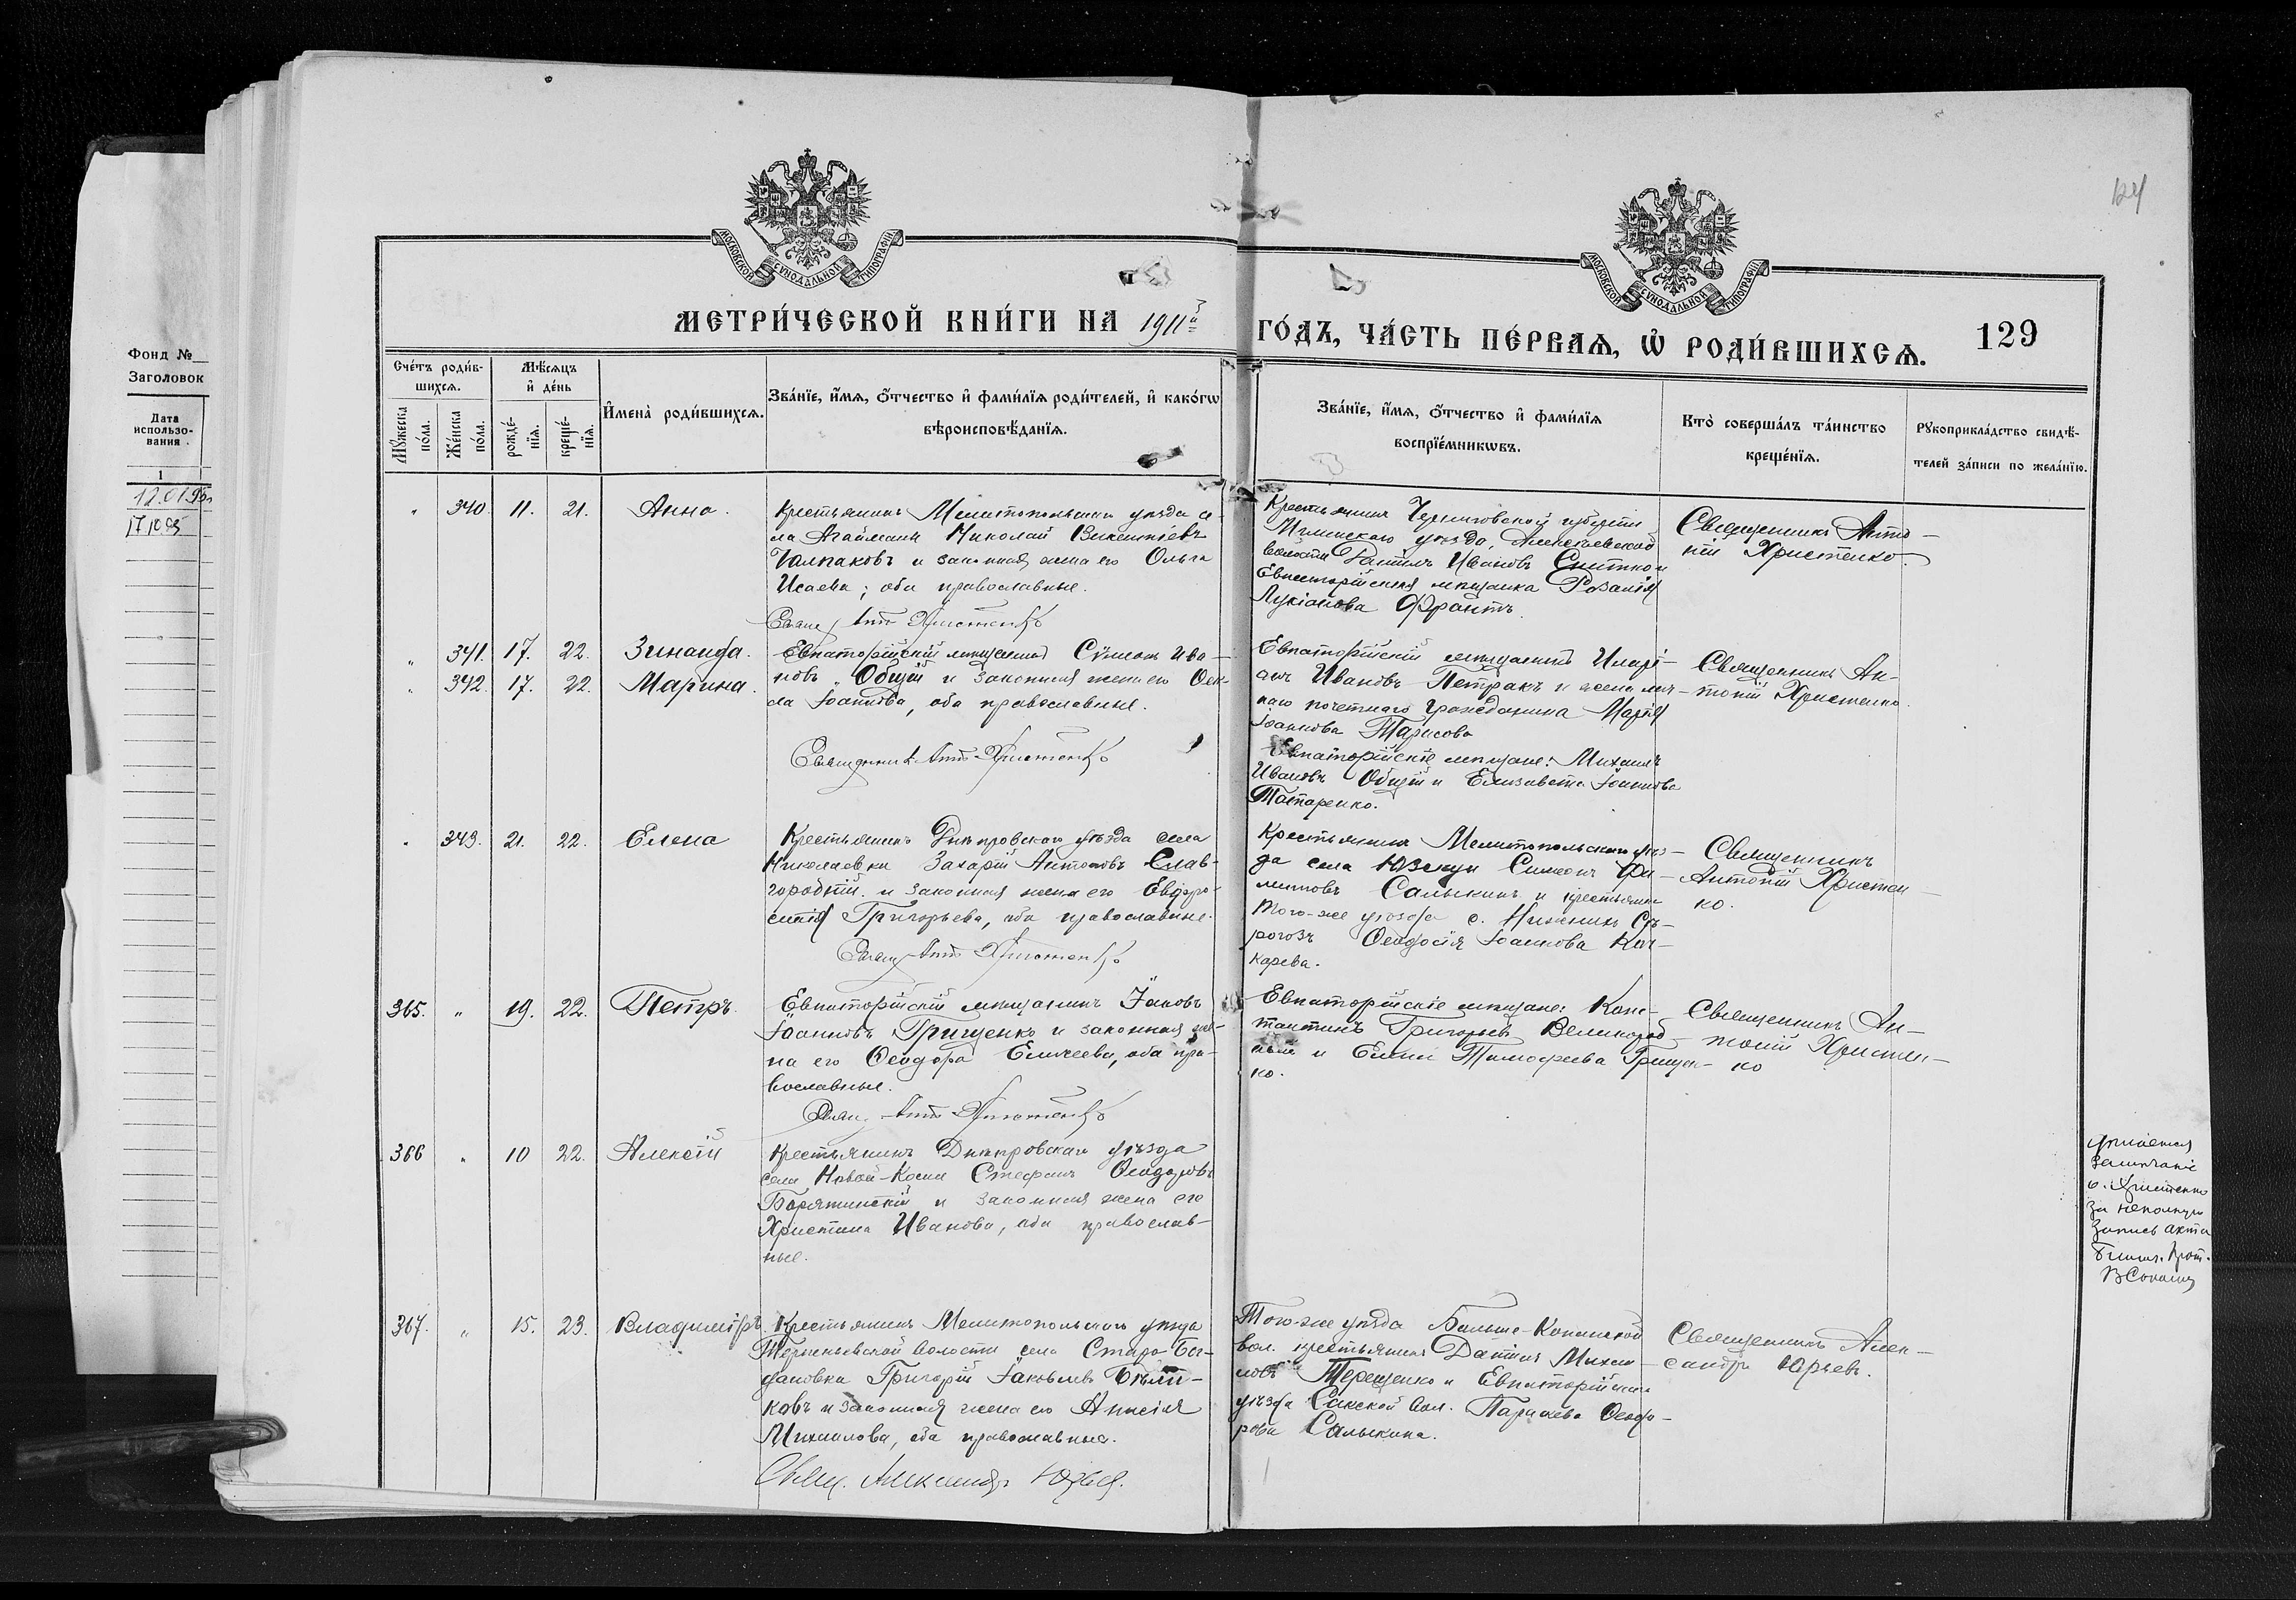 Фонд №
Заголовок
Дата
использо-
вания.
1
124
МОСКОВСКОЙ СѴНОДАЛЬНОЙ ТИПОГРАФІИ
МОСКОВСКОЙ СѴНОДАЛЬНОЙ ТИПОГРАФІИ
МЕТРИ́ЧЕСКОЙ КНИ́ГИ НА 1911й
ГО́ДЪ, ЧА́СТЬ ПЕ́РВАѦ, Ѡ҆ РОДИ́ВШИХСѦ. 129
Сче́тъ роди́в-
шихсѧ.
Мꙋ́жеска по́ла.
Же́нска по́ла.
Мѣ́сѧцъ
и҆ де́нь
рожде́-
нїѧ.
креще́-
нїѧ.
И҆мена̀ роди́вшихсѧ.
Зва́нїе, и҆́мѧ, ѻ҆́тчество и҆ фами́лїѧ роди́телей, и҆ како́гѡ
вѣроисповѣ́данїѧ.
Зва́нїе, и҆́мѧ, ѻ҆́тчество и҆ фами́лїѧ
воспрїе́мникѡвъ.
Кто̀ соверша́лъ та́инство
креще́нїѧ.
Рꙋкоприкла́дство свидѣ́-
телей за́писи по жела́нїю.
" 340. 11. 21. Анна.
Крестьянинъ Мелитопольскаго уѣзда се-
ла Агайманъ Николай Викентіевъ
Колпаковъ и законная жена его Ольга
Исаева; оба православные.
Свящ. Ант. Христенко
Крестьянинъ Черниговской губерніи
Мглинскаго уѣзда, Алексѣевской
волости Даніилъ Ивановъ Снитко и
Евпаторійская мѣщанка Розалія
Лукіанова Франтъ.
Священникъ Анто-
ній Христенко.
" 341. 17. 22. Зинаида.
" 342. 17. 22. Марина.
Евпаторійскій мѣщанинъ Сѵмеонъ Ива-
новъ Общій и законная жена его Ѳек-
ла Іоаннова, оба православные.
Священникъ Ант. Христенко
Евпаторійскій мѣщанинъ Иларі-
онъ Ивановъ Петракъ и жена лич-
наго почетнаго гражданина Марія
Іоаннова Тарасова
Евпаторійскіе мѣщане: Михаилъ
Ивановъ Общій и Елизавета Іоаннова
Татаренко.
Священникъ Ан-
тоній Христенко.
" 343. 21. 22. Елена
Крестьянинъ Днѣпровскаго уѣзда села
Николаевки Захарій Антоновъ Слав-
городній и законная жена его Евфро-
синія Григорьева, оба православные.
Свящ. Ант. Христенко
Крестьянинъ Мелитопольскаго уѣз-
да села Юзкуи Симеонъ Фи-
липповъ Салыкинъ и крестьянка
того-же уѣзда с. Нижнихъ Сѣ-
рогозъ Ѳеодосія Іоаннова Коч-
карева.
Священникъ
Антоній Христен-
ко.
365. " 19. 22. Петръ.
Евпаторійскій мѣщанинъ Іаковъ
Іоанновъ Грищенко и законная же-
на его Ѳеодора Елисеева, оба пра-
вославные.
Свящ. Ант. Христенко
Евпаторійскіе мѣщане: Конс-
тантинъ Григорьевъ Великород-
ный и Елена Тимофеева Грищен-
ко.
Священникъ Ан-
тоній Христен-
ко
366 " 10 22. Алексій
Крестьянинъ Днѣпровскаго уѣзда
села Новой-Косы Стефанъ Ѳеодоровъ
Барятинскій и законная жена его
Христина Иванова, оба православ-
ные.
замѣчаніе
о. Христенко
за неполную
запись акта
367. " 15. 23. Владиміръ.
Крестьянинъ Мелитопольскаго уѣзда
Терпеньевской волости села Старо Бог-
дановка Григорій Іаковлевъ Бѣли-
ковъ и законная жена его Анисія
Михаилова, оба православные.
Свящ. Александръ Юрьевъ.
Того-же уѣзда Больше-Копанской
вол. крестьянинъ Даніилъ Михаи-
ловъ Терещенко и Евпаторійскаго
уѣзда Сакской вол. Параскева Ѳеодо-
рова Салыкина.
Священникъ Алек-
сандръ Юрьевъ.